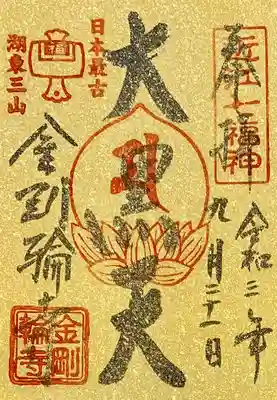 奉拝
近江七福神
令和三年
九月二十一日
大黒天
日本最古
湖東三山
金剛輪寺
金剛
輪寺